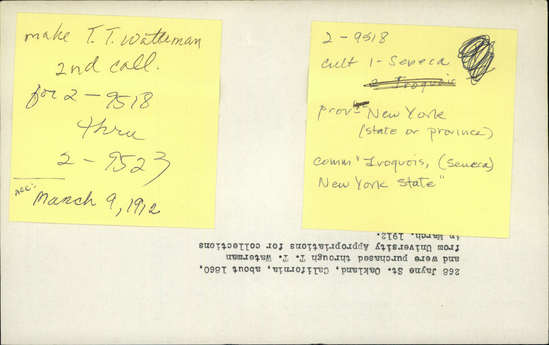 make T. T. Waterman
2nd coll.
for 2-9518
thru
2-9523
acc:
March 9, 1912
2-9518
cult 1- Seneca
2 Iroquois
prov- New York
(state or province)
comm "Iroquois, (Seneca)
New York State"
268 Jayne St. Oakland, California, about 1860,
and were purchased through T. T. Waterman
from University Appropriations for collections
in March, 1912.